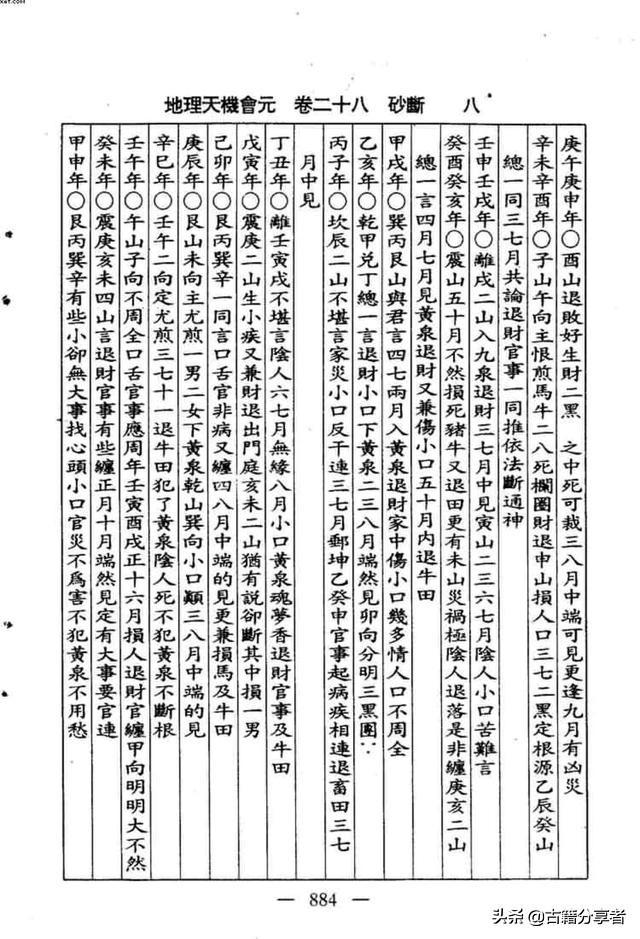 xet.com
地理天機會元　卷二十八　砂斷　八
庚午庚申年○酉山退敗好生財二黑　之中死可裁三八月中端可見更逢九月有凶災
辛未辛酉年○子山午向主恨煎馬牛二八死欄圈財退申山損人口三七二黑定根源乙辰癸山
總一同三七月共論退財官事一同推依法斷通神
壬申壬戌年○離戌二山入九泉退財三七月中見寅山二三六七月陰人小口苦難言
癸酉癸亥年○震山五十月不然損死豬牛又退田更有未山災禍極陰人退落是非纏庚亥二山
總一言四月七月見黃泉退財又兼傷小口五十月內退牛田
甲戌年○巽丙艮山與君言四七兩月入黃泉退財家中傷小口幾多情人口不周全
乙亥年○乾甲兑丁總一言退財小口下黃泉二三八月端然見卯向分明三黑團∵
丙子年○坎辰二山不堪言家災小口反干連三七月郵坤乙癸申官事起病疾相連退畜田三七
月中見
丁丑年○離壬寅戌不堪言陰人六七月無緣八月小口黃泉魂夢香退財官事及牛田
戊寅年○震庚二山生小疾又兼財退出門庭亥未二山猶有説卻斷其中損一男
己卯年○艮丙巽辛一同言口舌官非病又纏四八月中端的見更兼損馬及牛田
庚辰年○艮山未向主尤煎一男二女下黃泉乾山巽向小口顛三八月中端的見
辛巳年○壬午二向定尤煎三七十一退牛田犯了黃泉陰人死不犯黃泉不斷根
壬午年○午山子向不周全口舌官事應周年壬寅酉戌正十六月損人退財官纏甲向明明大不然
癸未年○震庚亥未四山言退財官事有些纏正月十月端然見定有大事要官連
甲申年○艮丙巽辛有些小卻無大事找心頭小口官災不爲害不犯黃泉不用愁
— 884 —
头条 @古籍分享者